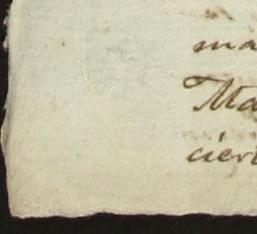 ma
Ma
cier